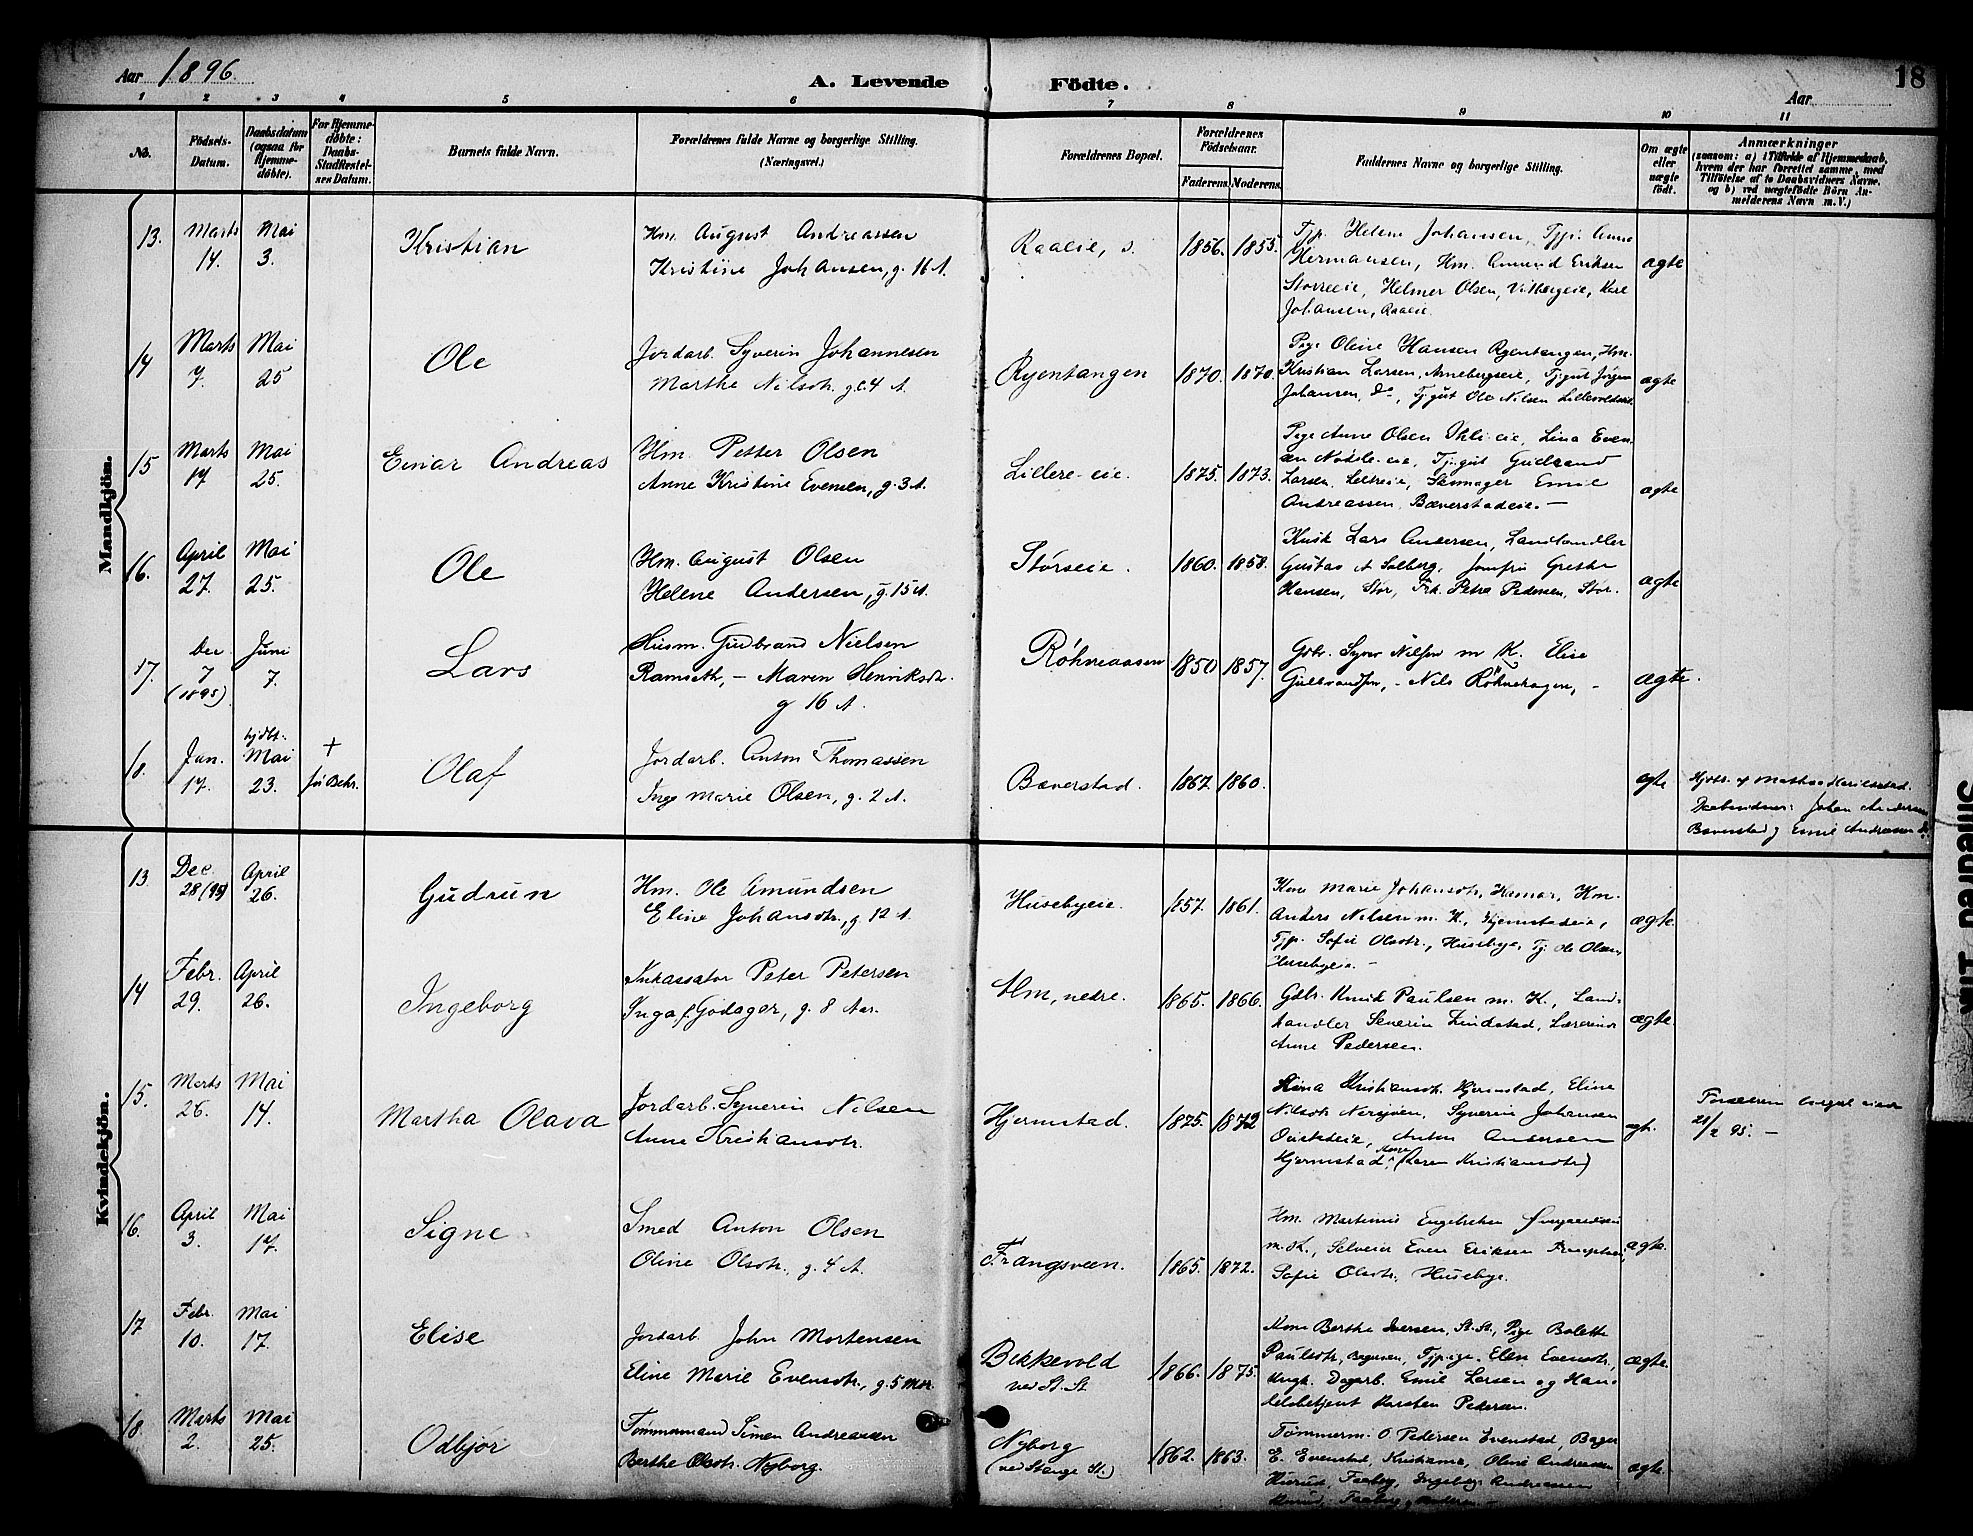 Aar 1896.
A. Levende Födte.
Aar
18
1 2 3 4 5 6 7 8 9 10 11
No.
Födsels-Datum.
Daabsdatum (ogsaa for Hjemme-döbte).
For Hjemme-döbte: Daabs-Stadfæstel-ses Datum.
Barnets fulde Navn.
Forældrenes fulde Navne og borgerlige Stilling. (Næringsvei.)
Forældrenes Bopæl.
Forældrenes Födselsaar.
Faderens. Moderens.
Faddernes Navne og borgerlige Stilling.
Om ægte eller uægte födt.
Anmærkninger
(saasom: a) i Tilfælde af Hjemmedaab, hvem der har forrettet samme, med Tilföielse af to Daabsvidners Navne, og b) ved uægtefödte Börn An-melderens Navn m. V.)
Mandkjön.
13. Marts 14. Mai 3. Kristian
Hm. August Andreassen
Kristine Johansen, g. 16 A.
Raaeie, s. 1856. 1855.
Tjp. Helene Johansen, Tjp. Anne
Hermansen, Hm. Amund Eriksen
Storreeie, Helmer Olsen, Vitbergeie, Karl
Johansen, Raaeie.
ægte
14 Marts 7. Mai 25 Ole
Jordarb. Syverin Johannesen
Marthe Nilsdtr. g. 4 A.
Ryentangen 1870. 1870.
Pige Oline Hansen Ryentangen, Hm.
Kristian Larsen, Arnebergseie, Tj.gut Jörgen
Johansen, Do, Tj.gut Ole Nilsen
ægte
15 Marts 17 Mai 25. Einar Andreas
Hm. Petter Olsen
Anne Kristine Evensen, g. 3 A.
Lillere-eie. 1875. 1873.
Pige Anne Olsen eie, Lina Even-
sen eie, Tj.gut Gudbrand
Larsen, Emil
Andreassen, Bæverstadeie. —
ægte
16. April 27. Mai 25. Ole
Hm. August Olsen
Helene Andersen, g. 15 A.
Störseie. 1860. 1858.
Kusk Lars Andersen, Landhandler
Gustav A Solberg, Jomfru Grethe
Hansen, Stör, Frk. Petra Pedersen, Stör.
ægte
17. Dec. 7 (1895) Juni 7. Lars
Husm. Gudbrand Nielsen
Ramseth, — Maren Henriksdr.
g 16 A.
Röhneaasen 1850 1857.
Gdbr. Syver Nilsen m K. Elise
Gulbrandsen, - Nils Röhnehagen, -
ægte.
18. Jan. 17. hjdbt. Mai 23. + før Bekr. Olaf
Jordarb. Anton Thomassen
Inge Marie Olsen, g. 2 A.
Bæverstad. 1867. 1860.
ægte
Hjdbt. af Mathea
Daabsvidner: Johan Andersen
Bæverstad og Emil Andreassen Do.
Kvindekjön.
13 Dec. 28 (95) April 26. Gudrun
Hm. Ole Amundsen
Eline Johansdtr., g. 12 A.
Husebyeie. 1857. 1861.
Kone Marie Johansdtr. Hamar, Hm.
Anders Nilsen m. K., Hjermstadeie,
Tjp. Sofie Olsdtr., Husebye, Tj. Ole Olsen
Husebyeie. —
ægte.
14 Febr. 29. April 26. Ingeborg
Inkassator Peter Petersen
Inga f. Godager, g. 8 Aar.
Alm, nedre. 1865. 1866.
Gdbr. Henrik Paulsen m. K., Land-
handler Severin Lindstad, Lærerinde
Anne Pedersen.
ægte.
15. Marts 26. Mai 14. Martha Olava
Jordarb. Syverin Nilsen
Anne Kristiansdtr.
Hjermstad. 1875. 1872
Stina Kristiansdtr. Hjermstad, Eline
Nilsdtr. Nersveen, Syverin Johansen
Anton Andersen
Hjermstad, (Karen Kristiansdtr)
ægt.
Forældrene borgel. viede
21/2 95. —
16. April 3. Mai 17. Signe
Smed Anton Olsen
Oline Olsdtr., g. 4 A.
Frangsveen. 1865. 1872.
Hm. Martinus Engebretsen
m. K., Selveier Even Eriksen
Sofie Olsdtr. Husebye.
ægte.
17 Febr. 10. Mai 17. Elise
Jordarb. John Mortensen
Eline Marie Evensdtr., g. 5 Mdr.
Bekkevold ved St. St 1866. 1875.
Kone Berthe Iversen, St. St., Pige Bolette
Paulsdtr, Tjpige Elen Evensdtr,
Ungk. Dagarb. Emil Larsen og Han-
delsbetjent Karsten Pedersen.
ægte.
18. Marts 2. Mai 25. Odbjör
Tømmermand Simen Andreassen
Berthe Olsdtr. Nyborg.
Nyborg (ved Stange St.) 1862. 1863.
Tømmerm. O. Pedersen Evenstad, Bager
E. Evenstad, Kristiania, Oline Andreassen
Faaberg, Ingeborg Andreassen
Faaberg, Moderen —
ægte.